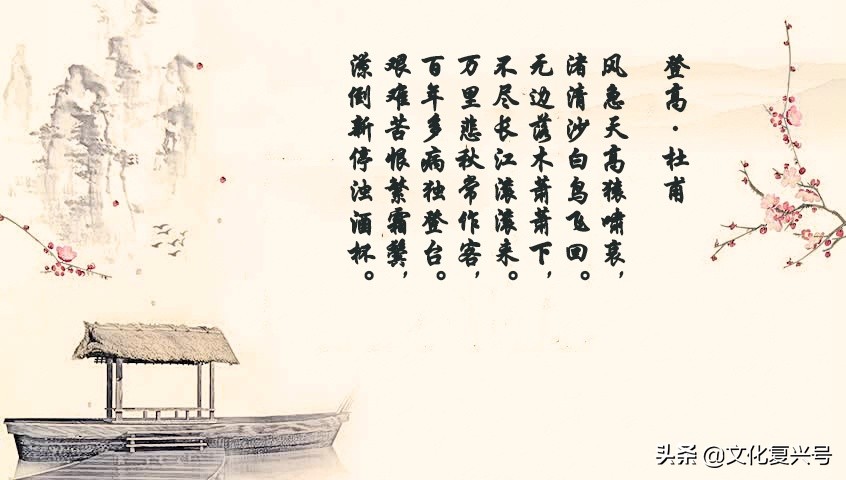 登高·杜甫
风急天高猿啸哀，
渚清沙白鸟飞回。
无边落木萧萧下，
不尽长江滚滚来。
万里悲秋常作客，
百年多病独登台。
艰难苦恨繁霜鬓，
潦倒新停浊酒杯。
头条 @文化复兴号